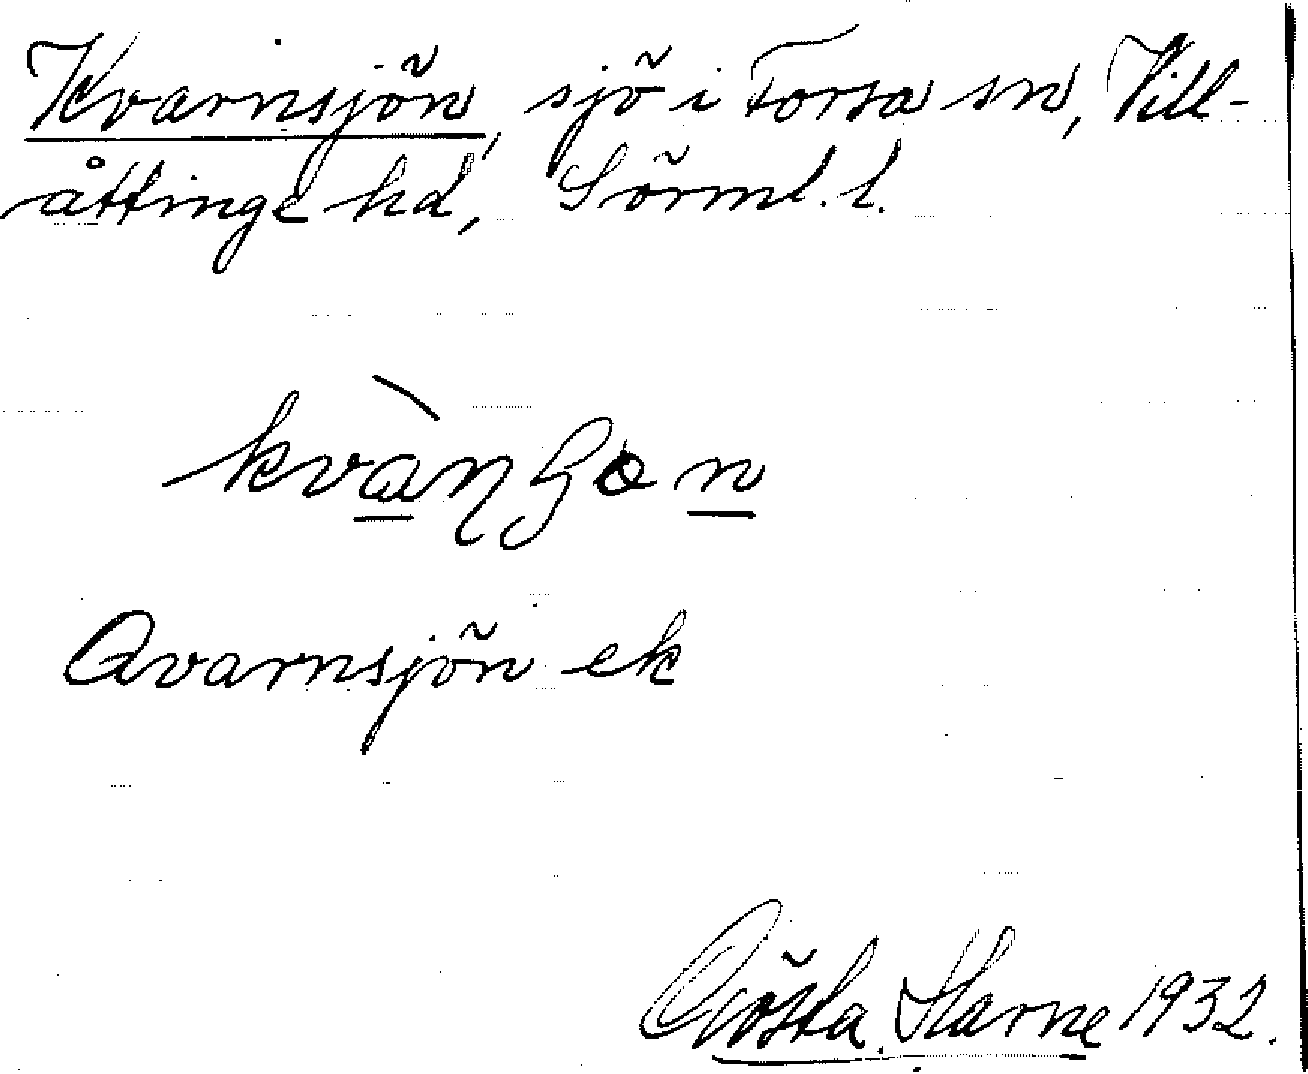 Kvarnsjön, sjö i Forssa sn, Vill-
åttinge hd, Sörml. l.
Qvarnsjön ek
Gösta 1932.